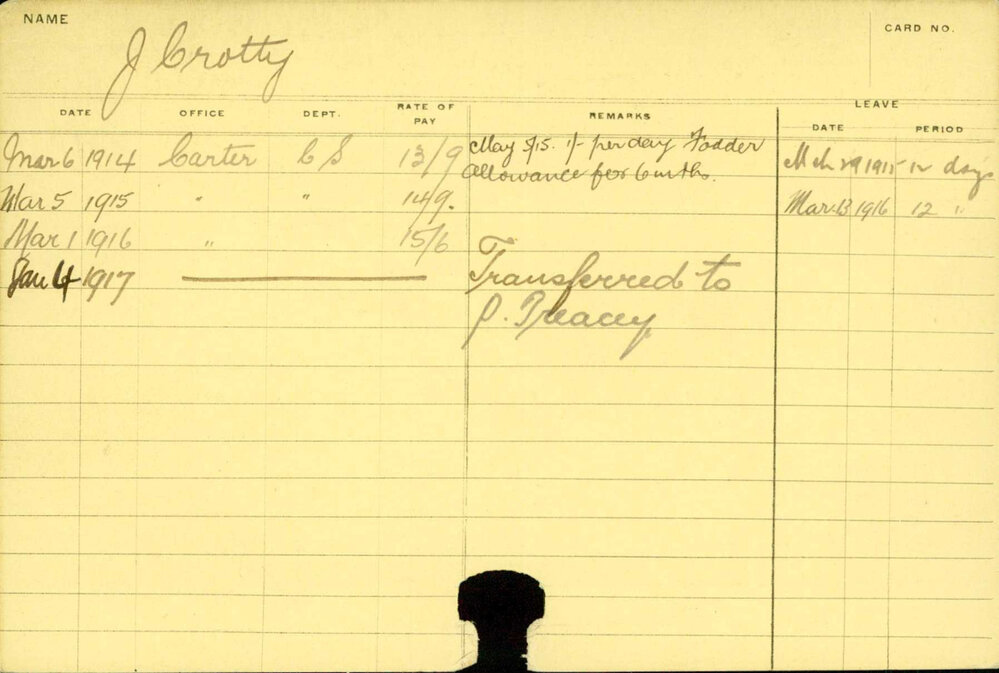 NAME
CARD NO.
J Crotty
DATE OFFICE DEPT. RATE OF PAY REMARKS LEAVE
DATE PERIOD
Mar 6 1914 Carter C S 13/9 May 5/15. 1/- per day Fodder
allowance for 6 mths.
Mch 29 1915 12 days
Mar 5 1915 " " 14/9. Mar 13 1916 12 "
Mar 1 1916 " 15/6
Jan 4 1917 Transferred to
P. Treacey